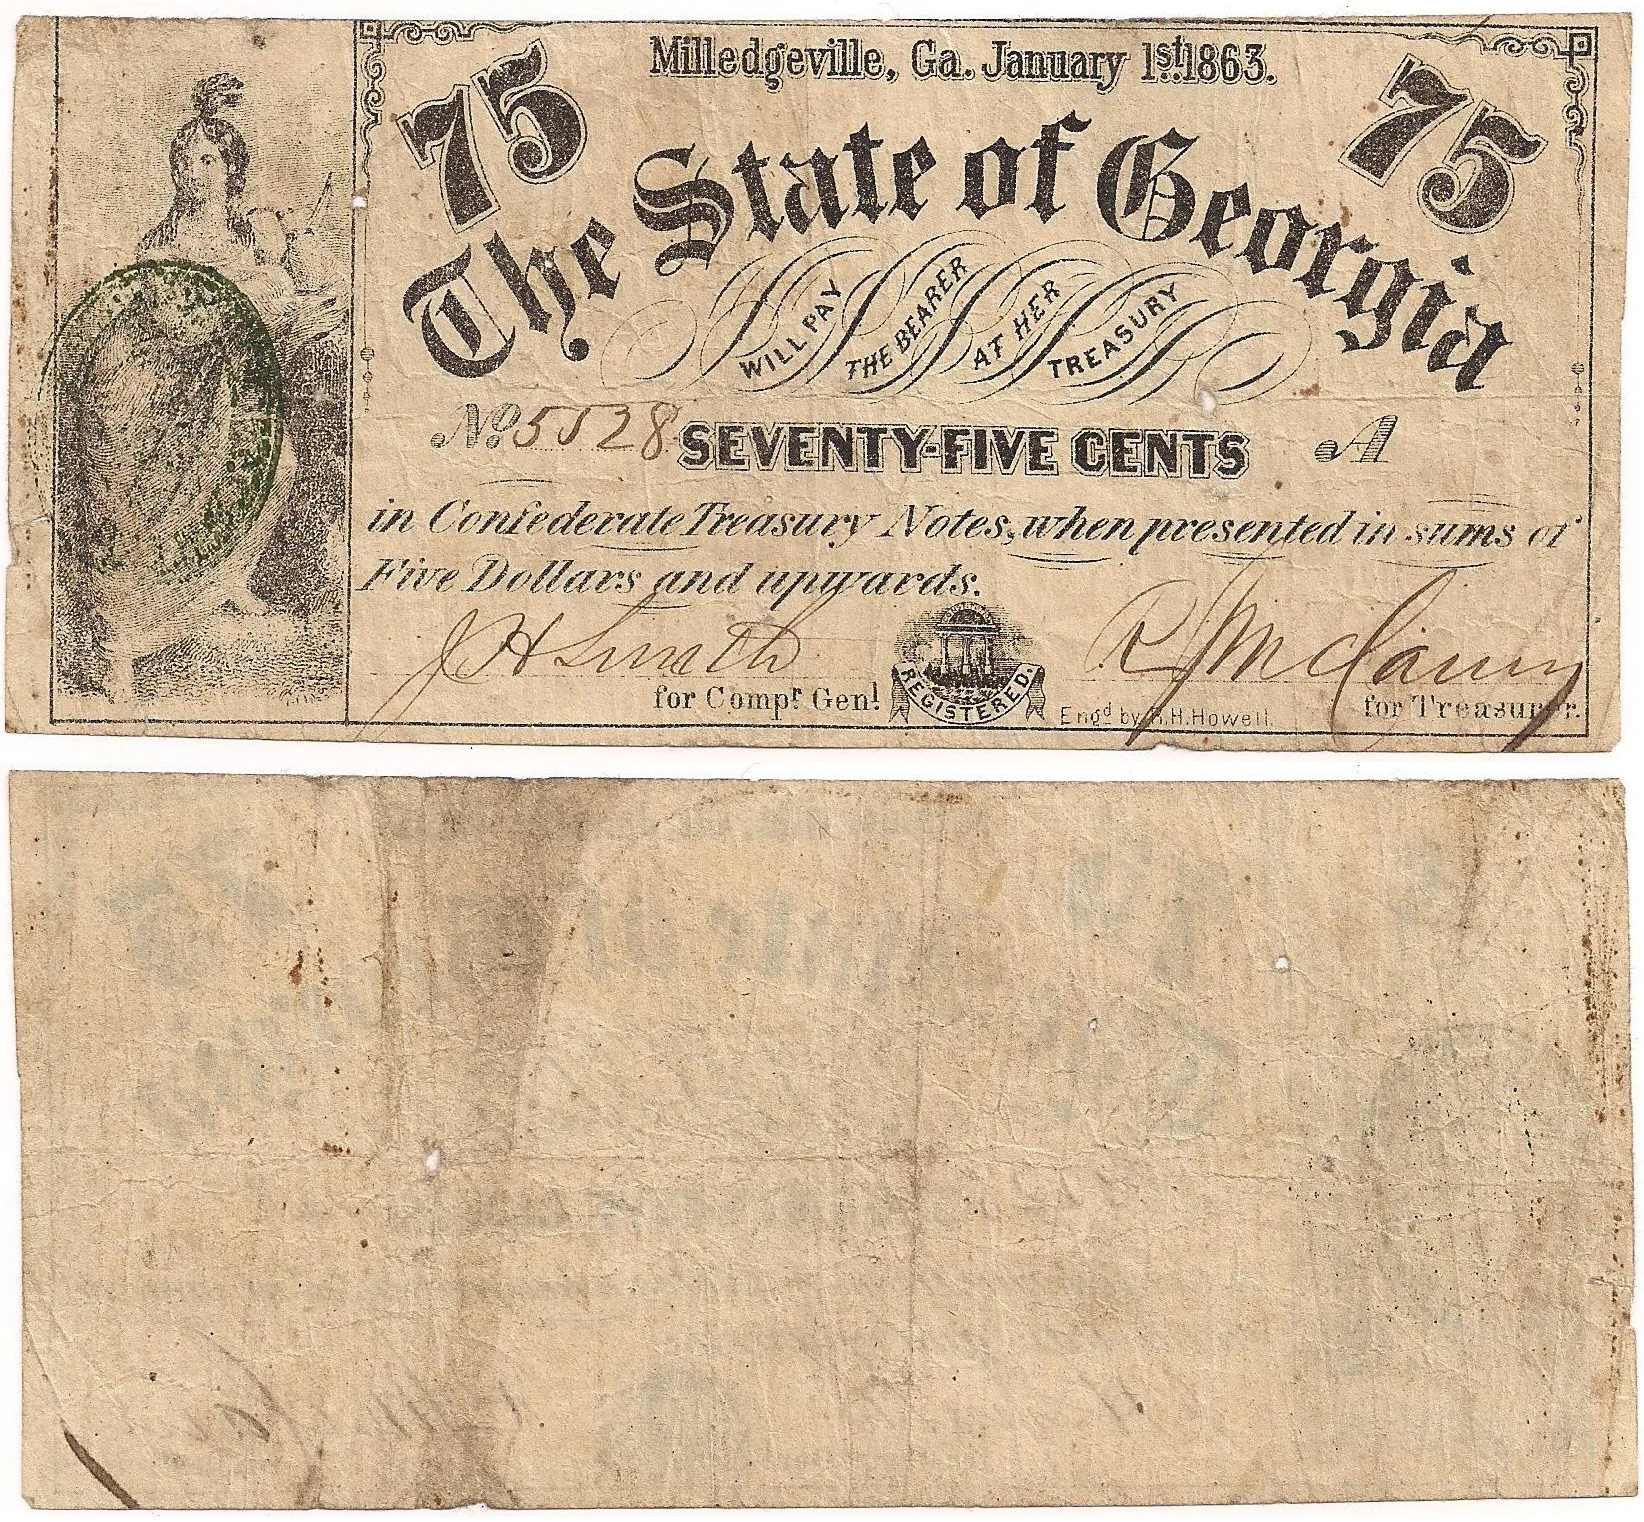 Milledgeville, Ga. January 1st 1863.
75 75
The State of Georgia
WILL PAY THE BEARER AT HER TREASURY
No. 5528 SEVENTY-FIVE CENTS A
in Confederate Treasury Notes, when presented in sums of
Five Dollars and upwards.
J H Smith
for Compr. Genl. REGISTERED. Engd by R.H.Howell. for Treasurer.